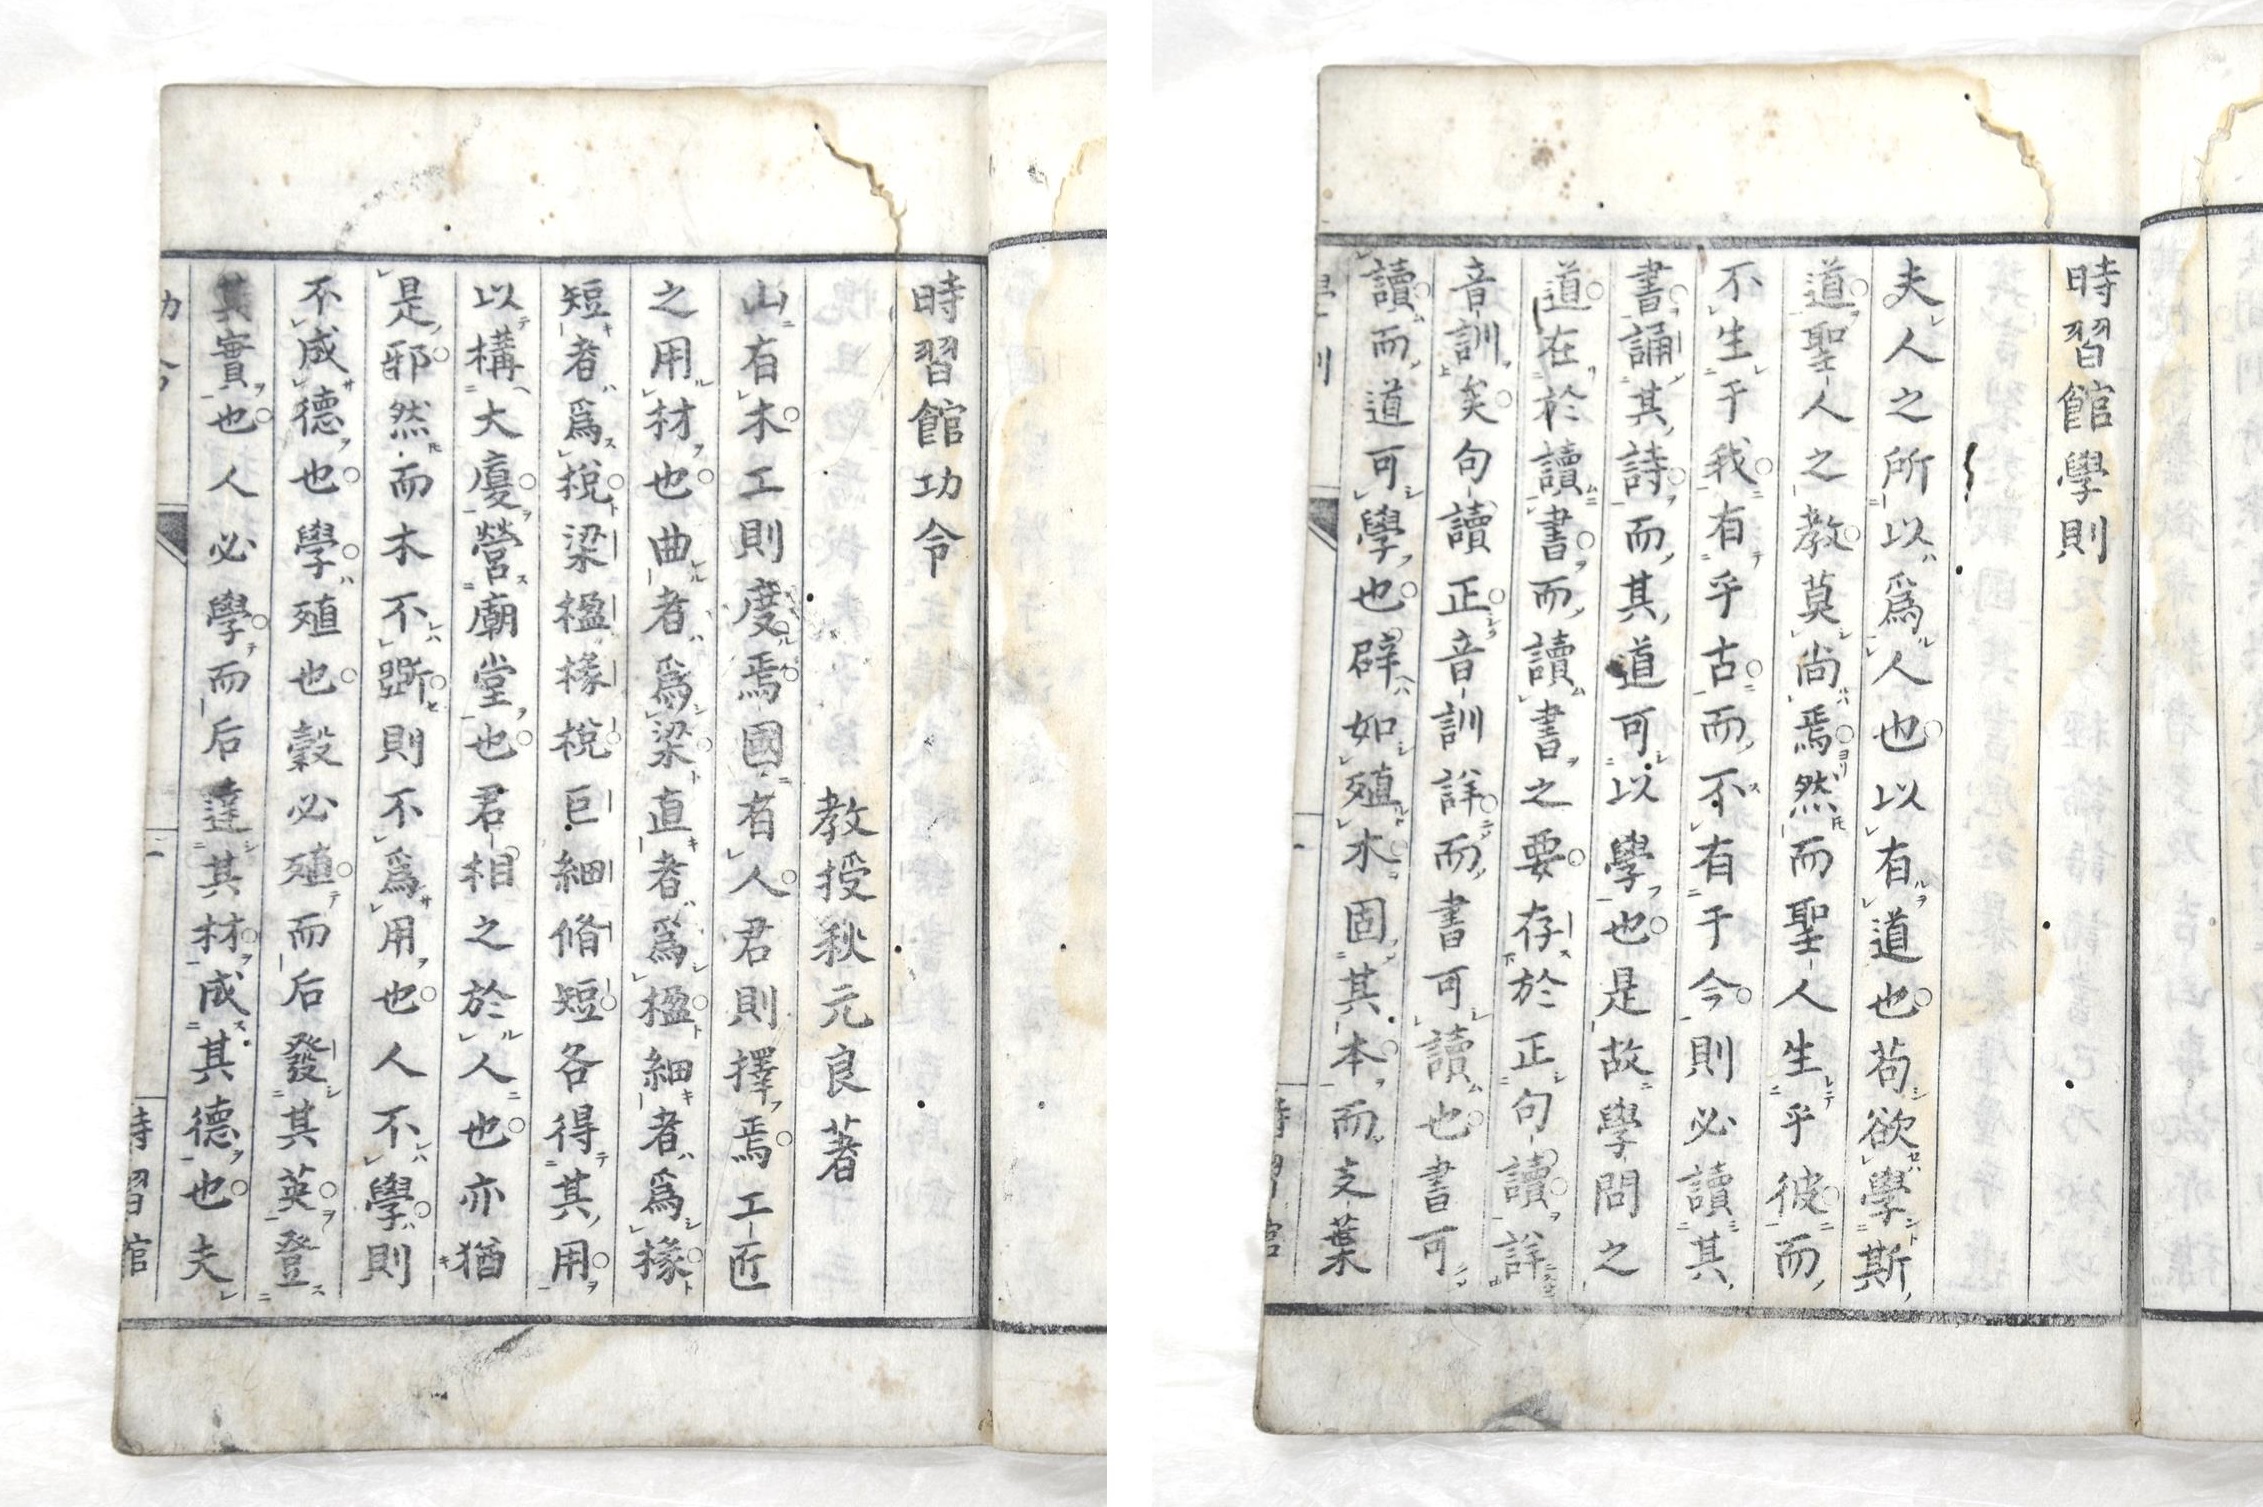 時習館學則
夫人之所以爲人也以有道也苟欲學斯
道聖人之教莫尚焉然而聖人生乎彼而
不生于我有乎古而不有于今則必讀其
書誦其詩而其道可以學也是故學問之
道在於讀書而讀書之要存於正句讀詳
音訓矣句讀正音訓詳而書可讀也書可
讀而道可學也辟如殖木固其本而支葉
時習館功令
教授秋元良著
山有木工則度焉國有人君則擇焉工匠
之用材也曲者爲梁直者爲楹細者爲椽
短者爲棁梁楹椽棁巨細脩短各得其用
以構大廈營廟堂也君相之於人也亦猶
是邪然而木不斲則不爲用也人不學則
不成德也學殖也穀必殖而后發其英登
其實也人必學而后達其材成其德也夫
時習館